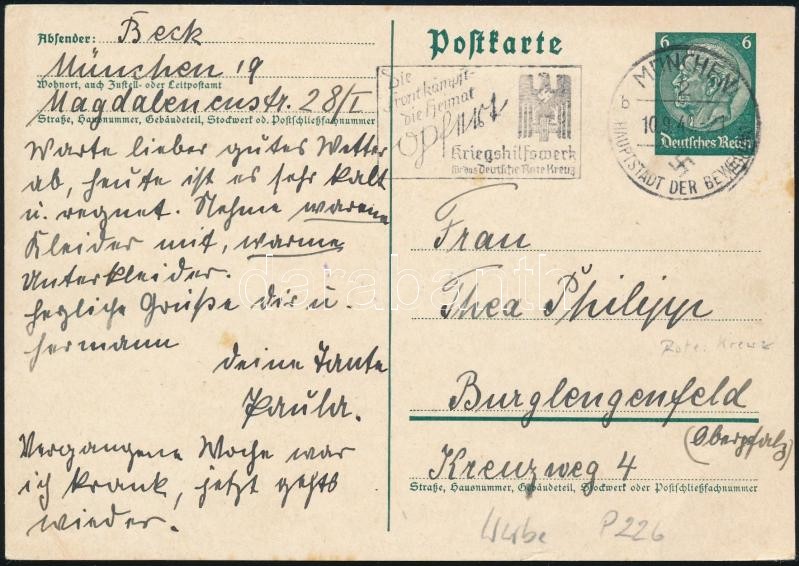 Absender: Beck
München 19
Wohnort, auch Zustell- oder Leitpostamt
Magdalenenstr. 28/I
Straße, Hausnummer, Gebäudeteil, Stockwerk od. Postschließfachnummer
Warte lieber gutes Wetter
ab, heute ist es sehr kalt
u. regnet. Nehme warme
Kleider mit, warme
Unterkleider.
herzliche Grüße dir u.
hermann
deine Tante
Paula.
Vergangene Woche war
ich krank, jetzt gehts
wieder.
Postkarte
Die
Front kämpft-
die Heimat
opfert
Kriegshilfswerk
für das Deutsche Rote Kreuz
MÜNCHEN
b
10.9.4
HAUPTSTADT DER BEWE
6 6
Deutsches Reich
Frau
Thea Philipp
Rote. Kreuz
Burglengenfeld
(Oberpfalz)
Kreuzweg 4
Straße, Hausnummer, Gebäudeteil, Stockwerk oder Postschließfachnummer
Werbe P226
darabanth